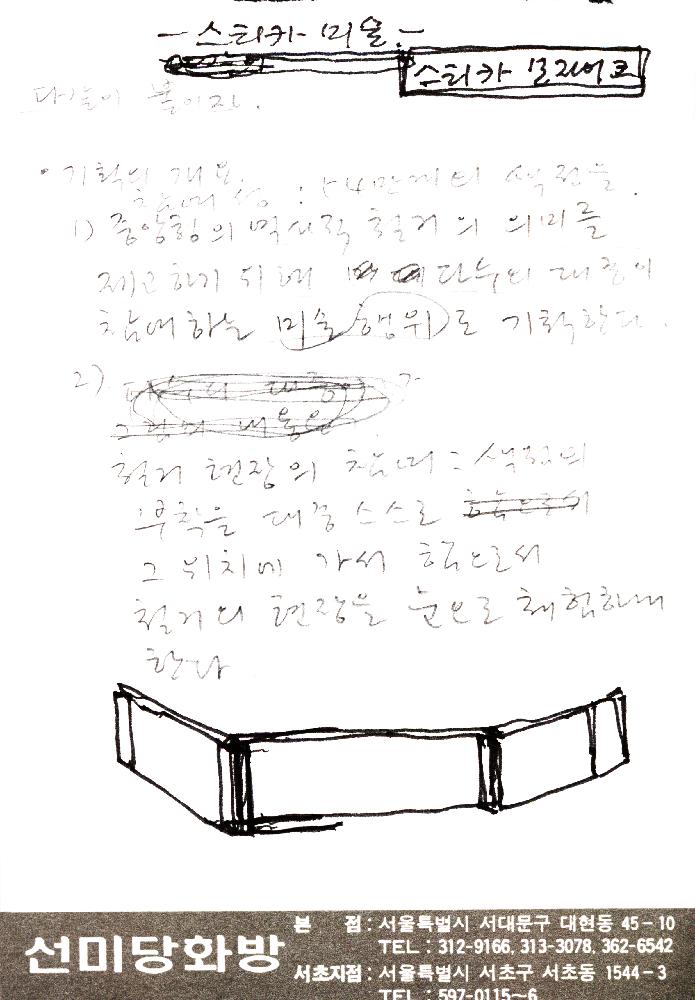 - 스티카 미술 -
스티카 모자이크
다같이 붙이자.
• 기획의 개요.
참여성 : 54만개의 색점을.
1) 중앙청의 역사적 철거의 의미를
제고하기 위해 다수의 대중이
참여하는 미술행위로 기획한다.
2) 다수의 대중이
그림의 내용은
철거 현장의 참여 : 색점의
부착을 대중 스스로
그 위치에 가서 함으로서
철거의 현장을 눈으로 체험하게
한다
선미당화방
본 점 : 서울특별시 서대문구 대현동 45-10
TEL : 312-9166, 313-3078, 362-6542
서초지점 : 서울특별시 서초구 서초동 1544-3
TEL : 597-0115~6